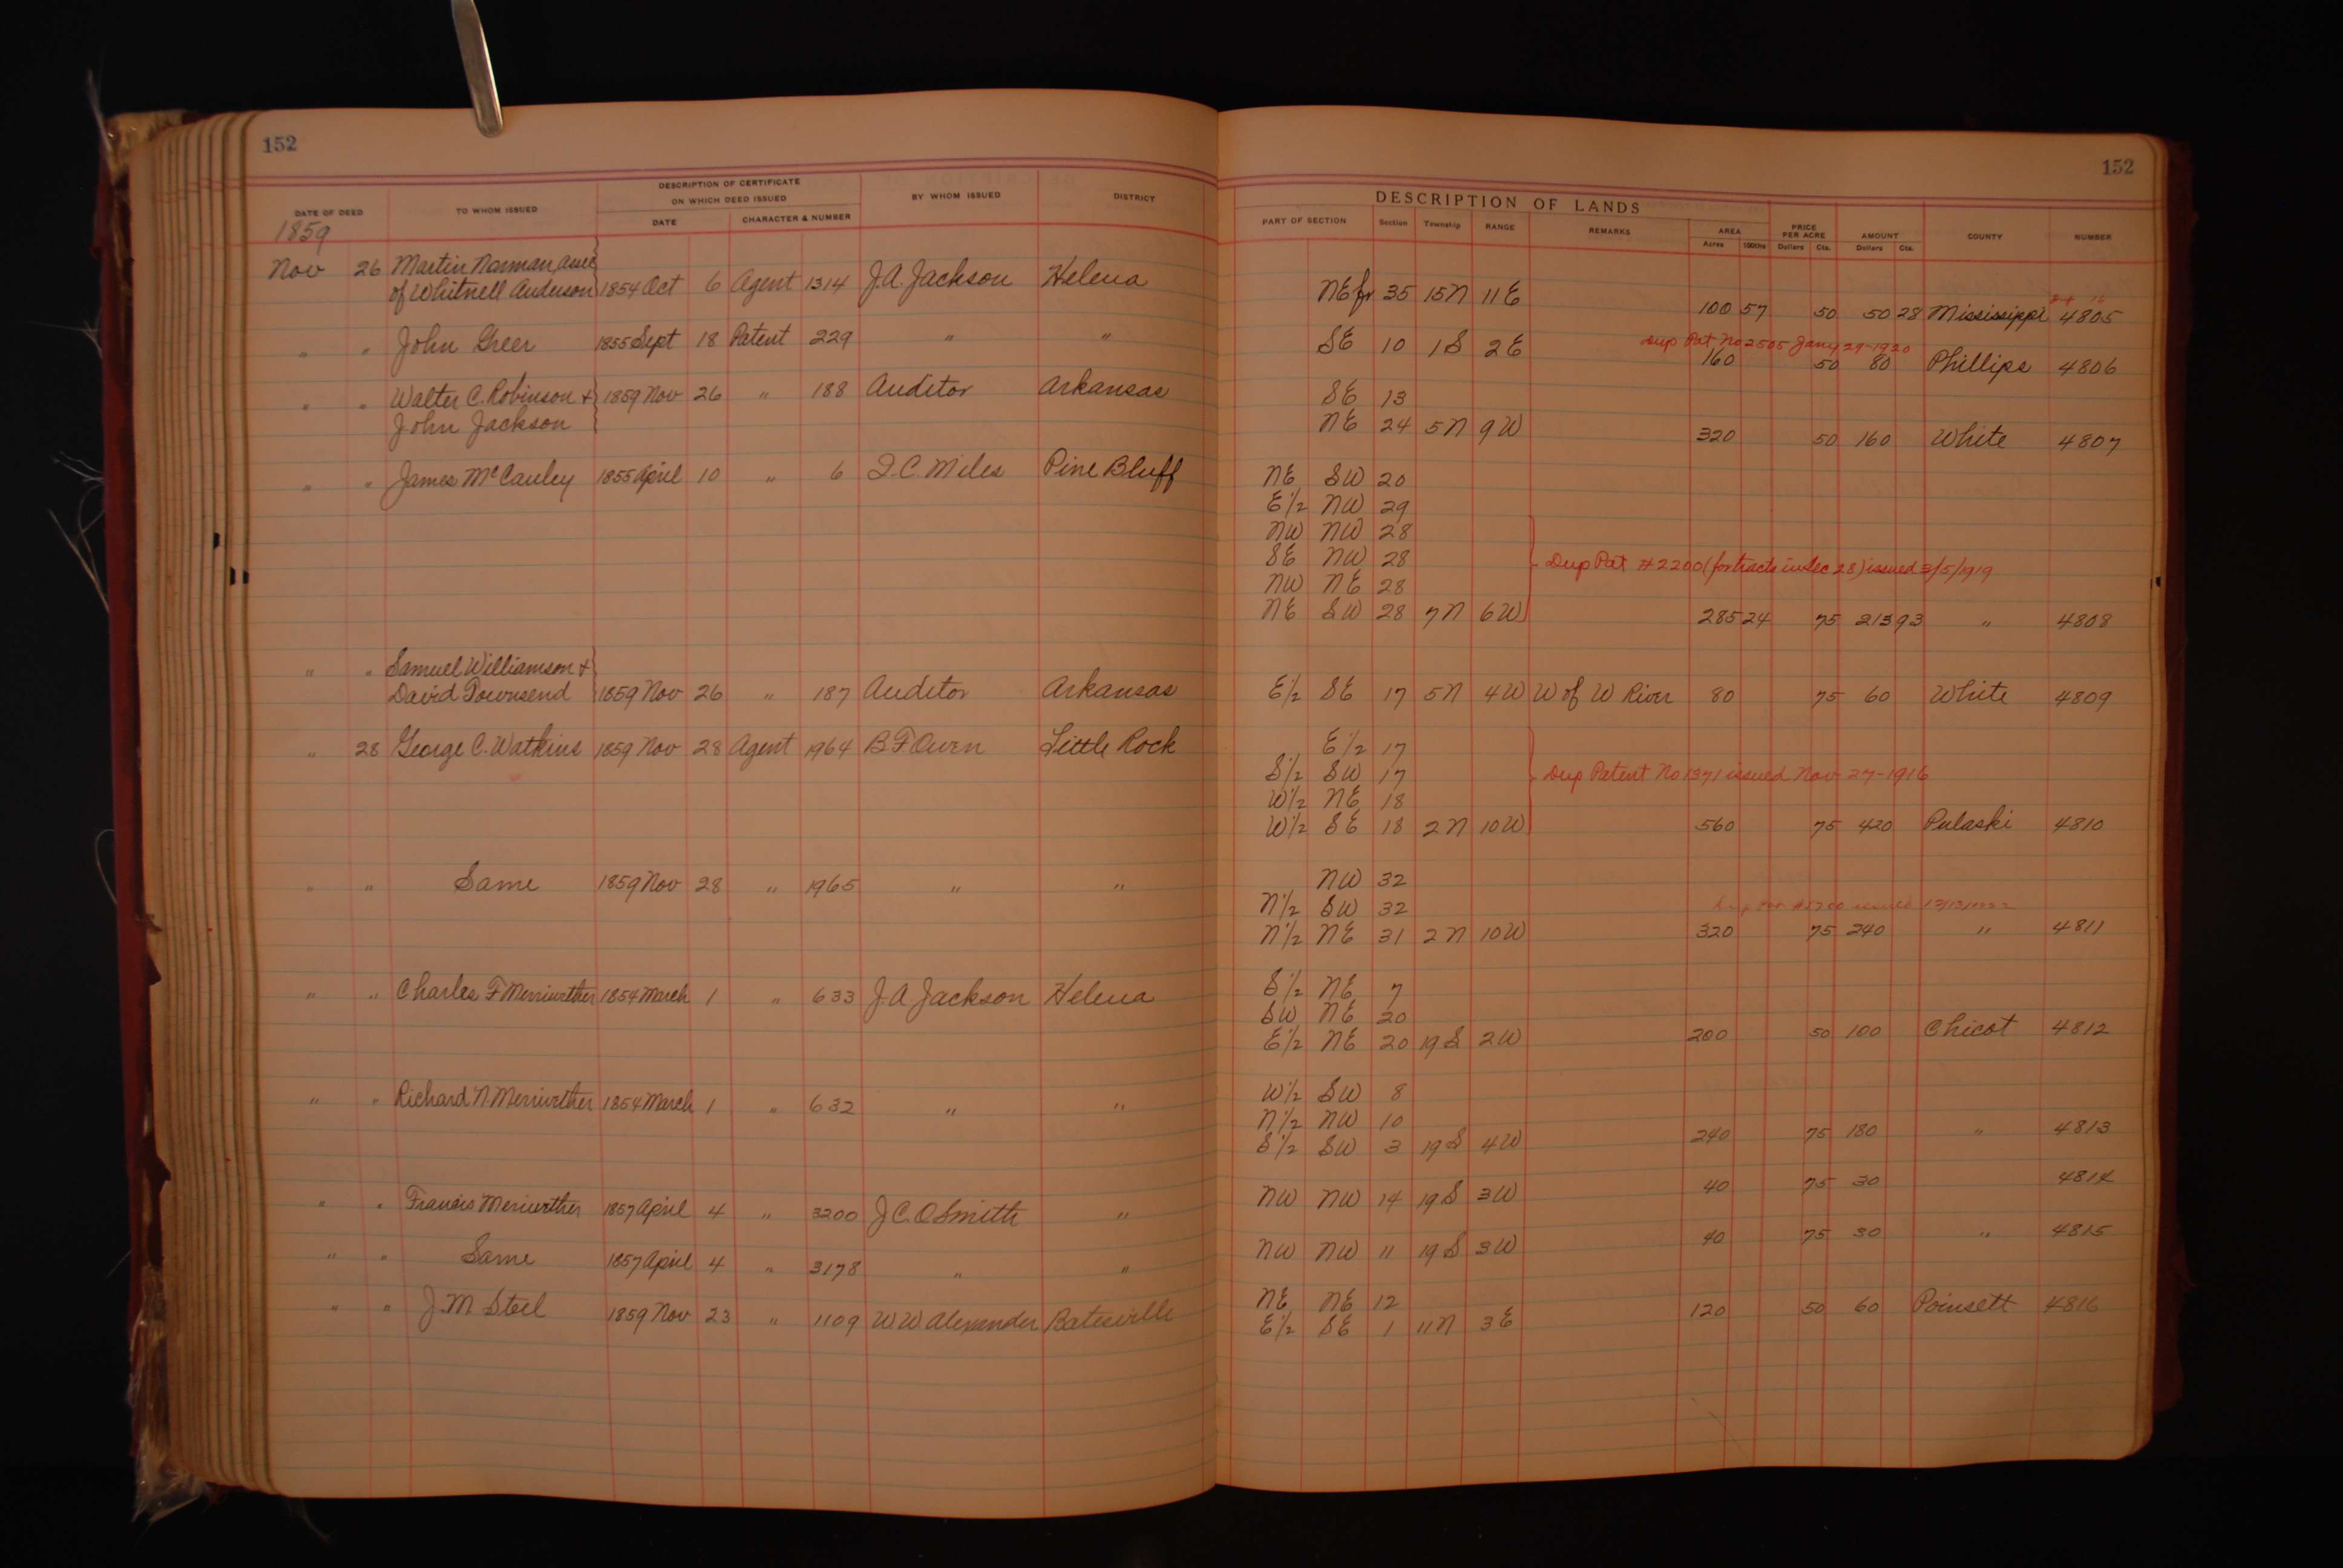 152
152
DESCRIPTION OF CERTIFICATE
ON WHICH DEED ISSUED
DATE OF DEED TO WHOM ISSUED DATE CHARACTER & NUMBER BY WHOM ISSUED DISTRICT
DESCRIPTION OF LANDS
PART OF SECTION Section Township RANGE REMARKS AREA Acres 100ths PRICE PER ACRE Dollars Cts. AMOUNT Dollars Cts. COUNTY NUMBER
1859
Nov 26 Martin Norman, assee
of Whitnell Anderson 1854 Oct 6 Agent 1314 J.A. Jackson Helena NE fr 35 15N 11E 100 57 50 50 28 Mississippi 4805
Dup Pat No 2505 Jany 29-1920
" " John Greer 1855 Sept 18 Patent 229 " " SE 10 1S 2E 160 50 80 Phillips 4806
" " Walter C. Robinson + 1859 Nov 26 " 188 Auditor Arkansas SE 13
John Jackson NE 24 5N 9W 320 50 160 White 4807
" " James McCauley 1855 April 10 " 6 I.C. Miles Pine Bluff NE SW 20
E 1/2 NW 29
NW NW 28
SE NW 28 Dup Pat #2200 (for tracts in Sec 28) issued 3/5/1919
NW NE 28
NE SW 28 7N 6W 285 24 75 213 93 " 4808
" " Samuel Williamson +
David Townsend 1859 Nov 26 " 187 Auditor Arkansas E 1/2 SE 17 5N 4W W of W River 80 75 60 White 4809
" 28 George C. Watkins 1859 Nov 28 Agent 1964 B F Owen Little Rock E 1/2 17
S 1/2 SW 17 Dup Patent No 1371 issued Nov 27-1916
W 1/2 NE 18
W 1/2 SE 18 2N 10W 560 75 420 Pulaski 4810
" " Same 1859 Nov 28 " 1965 " " NW 32
N 1/2 SW 32
N 1/2 NE 31 2N 10W 320 75 240 " 4811
" " Charles F Merriwether 1854 March 1 " 633 J.A. Jackson Helena S 1/2 NE 7
SW NE 20
E 1/2 NE 20 19S 2W 200 50 100 Chicot 4812
" " Richard N. Merriwether 1854 March 1 " 632 " " W 1/2 SW 8
N 1/2 NW 10
S 1/2 SW 3 19S 4W 240 75 180 " 4813
" " Francis Meriwether 1857 April 4 " 3200 J C. O Smith " NW NW 14 19S 3W 40 75 30 4814
" " Same 1857 April 4 " 3178 " " NW NW 11 19S 3W 40 75 30 " 4815
" " J. M Steel 1859 Nov 23 " 1109 W W Alexander Batesville NE NE 12
E 1/2 SE 1 11N 3E 120 50 60 Poinsett 4816